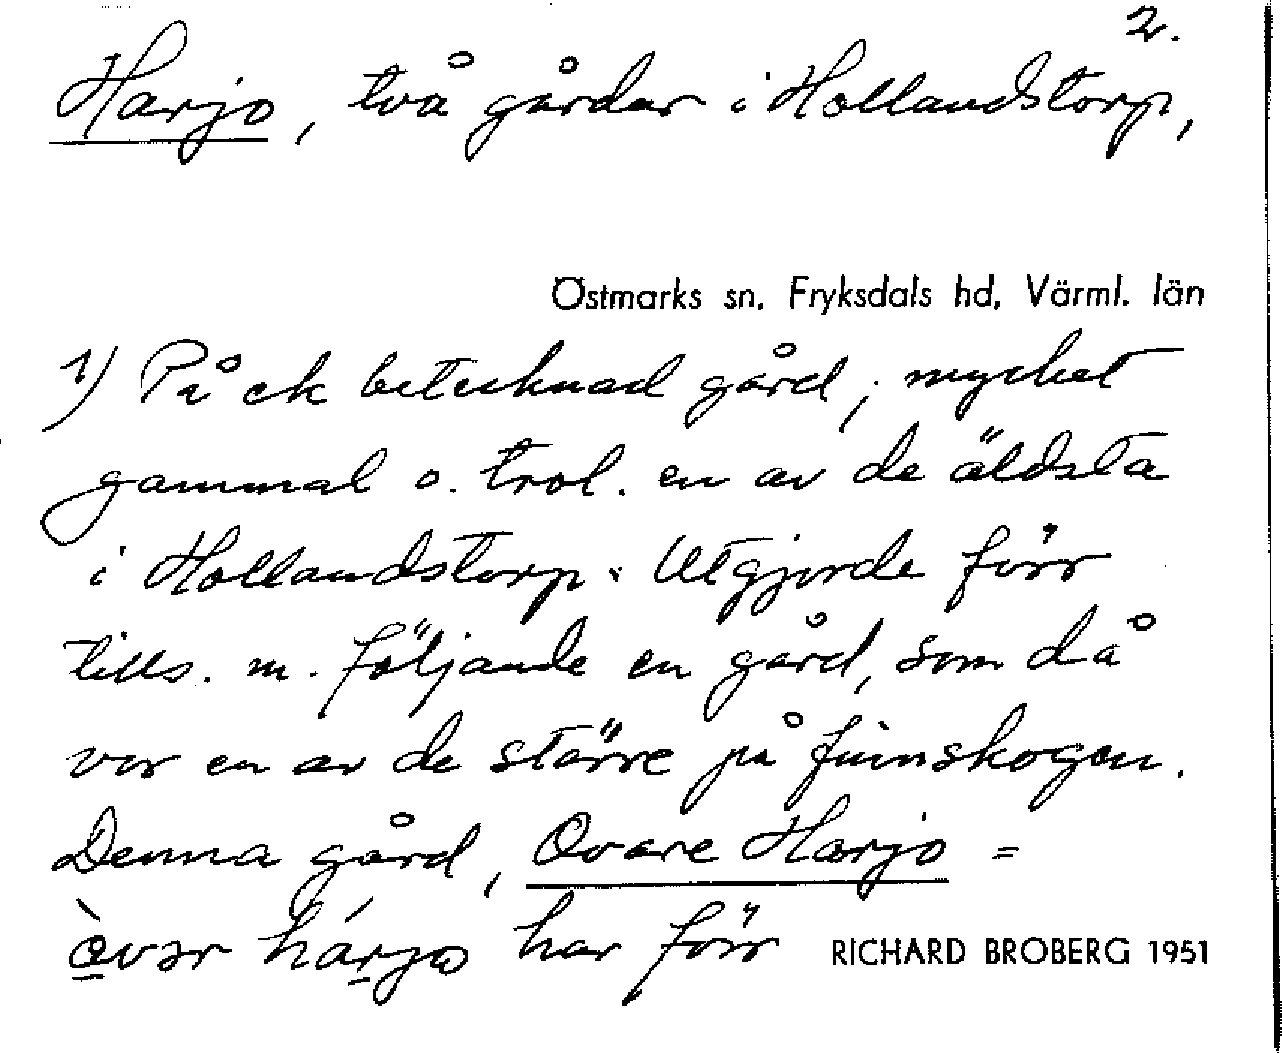 2.
Harjo, två gårdar i Hollandstorp,
Östmarks sn, Fryksdals hd, Värml. län
1) På ek betecknad gård, mycket
gammal o. trol. en av de äldsta
i Hollandstorp. Utgjorde förr
tills. m. följande en gård, som då
var en av de större på finnskogen.
Denna gård, Ovare Harjo =
òvər hárjo har förr
RICHARD BROBERG 1951